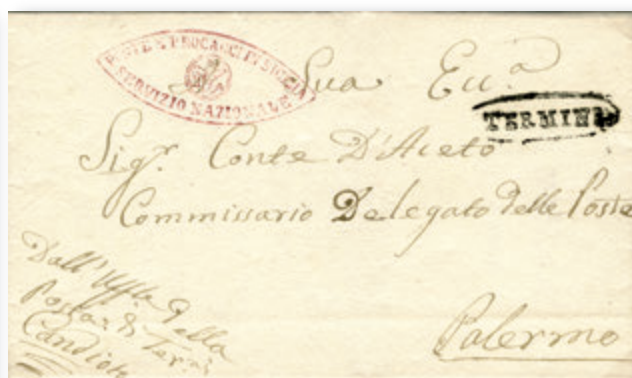 POSTE E PROCACCI IN SICILIA
SERVIZIO NAZIONALE
Sua Ecc.a
TERMINI
Sig.r Conte D'Aceto
Commissario Delegato delle Poste
Dall' Uff.a della
Posta di
Palermo